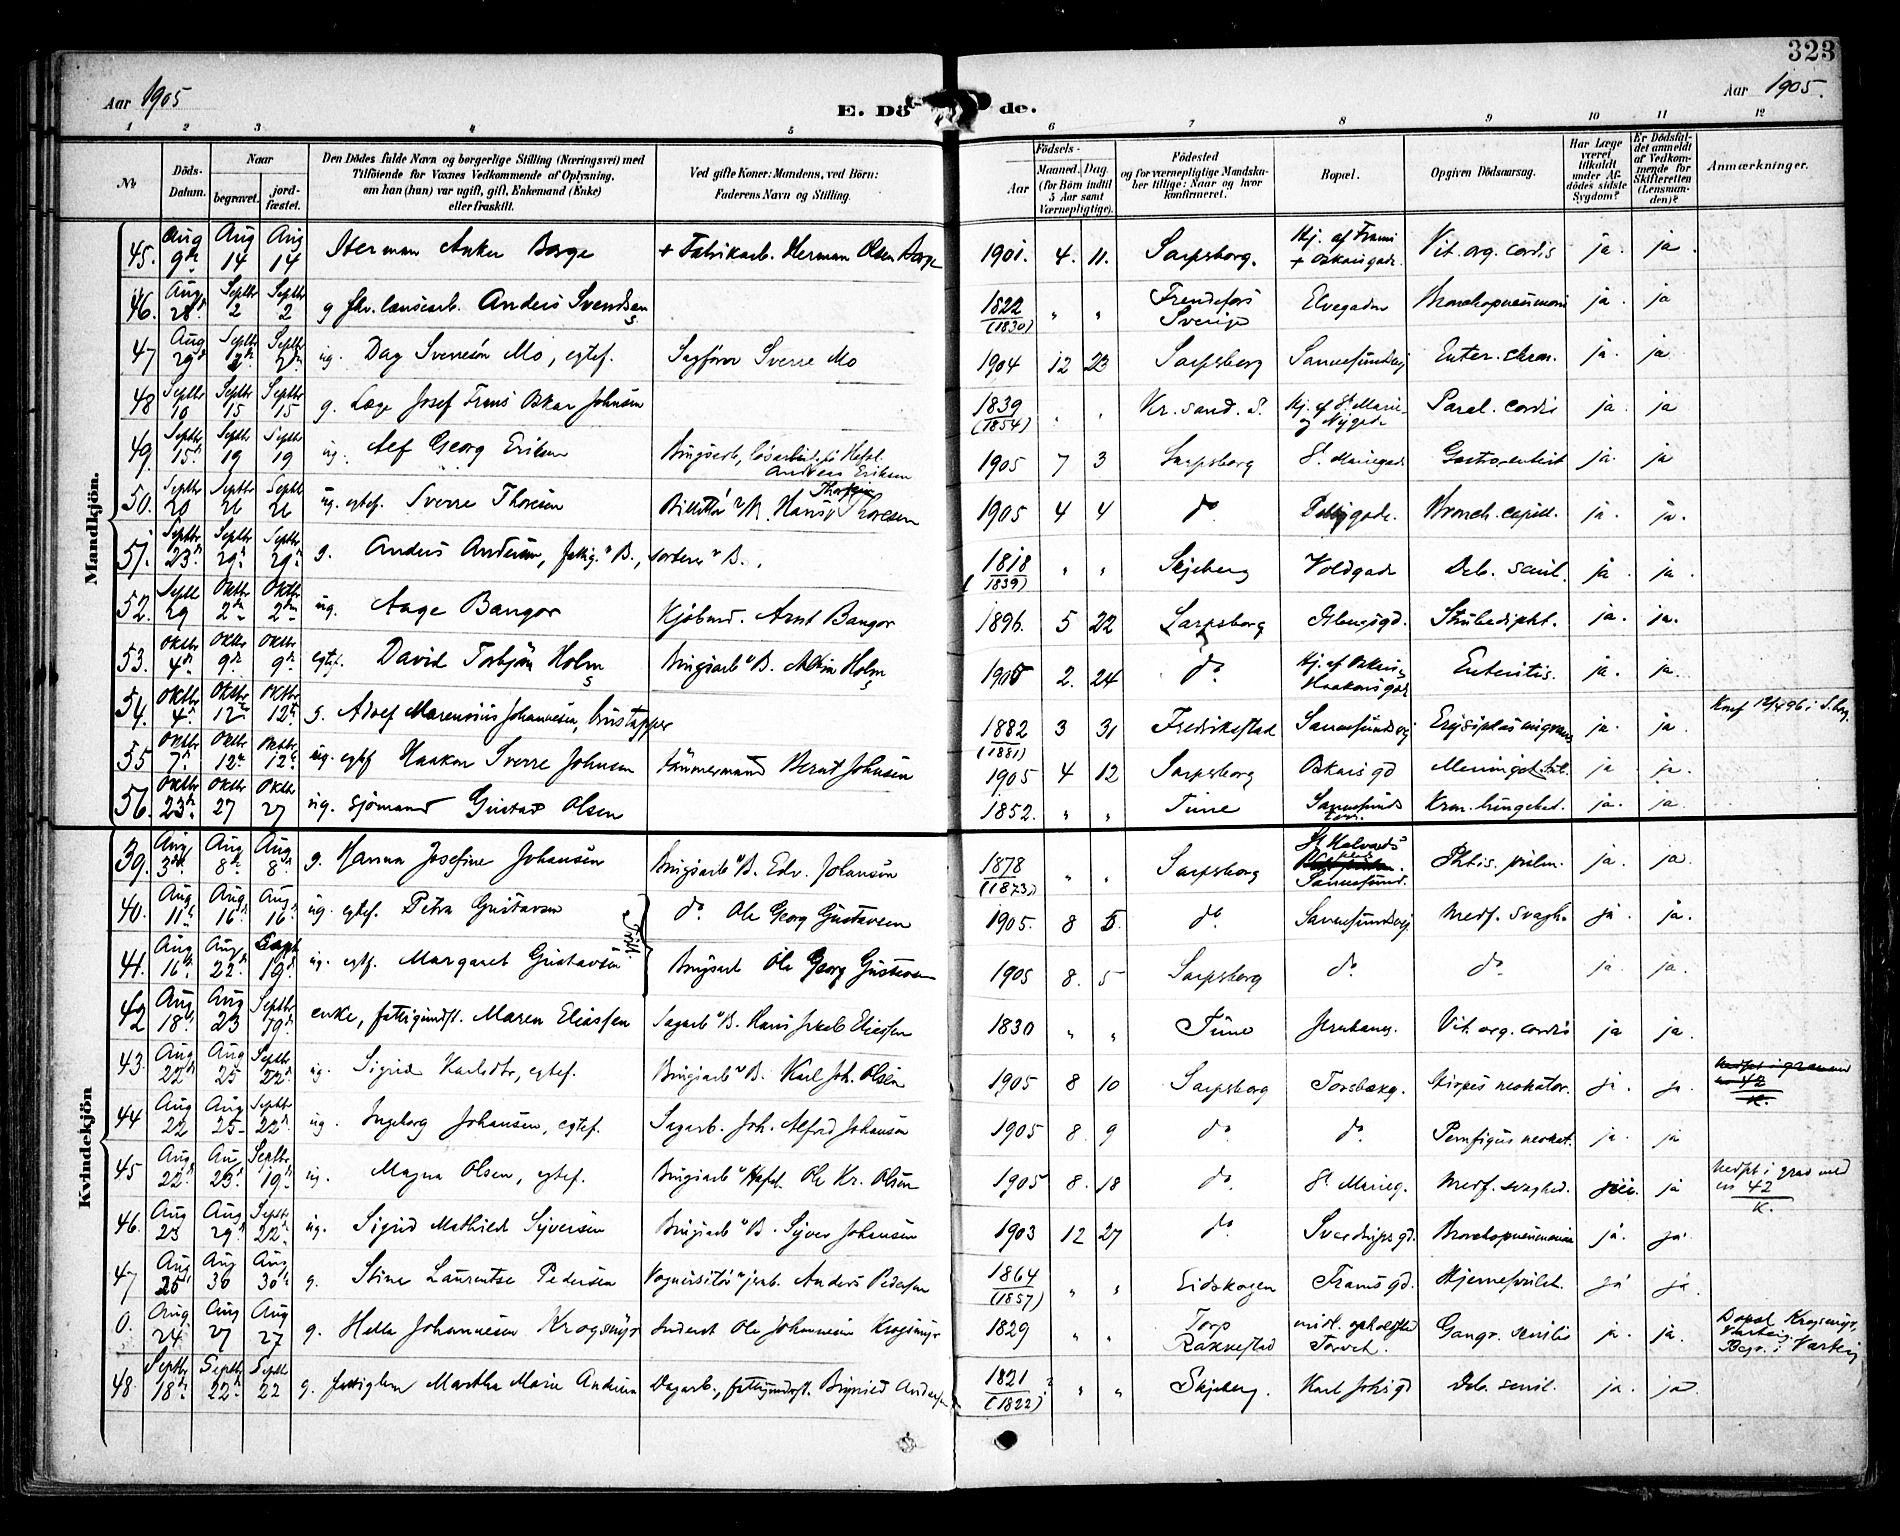 323
Aar 1905
E. Dö de.
Aar 1905.
1 2 3 4 5 6 7 8 9 10 11 12
No
Döds-
Datum.
Naar
begravet.
jord-
fæstet.
Den Dödes fulde Navn og borgerlige Stilling (Næringsvei) med
Tilföiende for Voxnes Vedkommende af Oplysning,
om han (hun) var ugift, gift, Enkemand (Enke)
eller fraskilt.
Ved gifte Koner: Mandens, ved Börn:
Faderens Navn og Stilling.
Födsels-
Aar
Maaned. Dag.
(for Börn indtil
5 Aar samt
Værnepligtige).
Födested
og for værnepligtige Mandska-
ber tillige: Naar og hvor
konfirmeret.
Bopæl.
Opgiven Dödsaarsag.
Har Læge
været
tilkaldt
under Af-
dödes sidste
Sygdom?
Er Dödsfal-
det anmeldt
af Vedkom-
mende for
Skifteretten
(Lensman-
den)?
Anmærkninger.
Mandkjön.
45. Aug 9de Aug 14 Aug 14 Herman Anker Borge + Fabrikarb. Herman Olsen Borge 1901. 4. 11. Sarpsborg. Hj. af Frams + Oskarsgade. Vit. org. cordis ja. ja.
46. Aug 28 Septbr 2 Septbr 2 g fhv. lænsearb. Anders Svendsen 1822 (1830) " " Sverige Elvegaden Bronchopneumoni ja. ja
47 Aug 29 Septbr 2 Septbr 2 ug. Dag Sverresön Mo, egtef. Sagförer Sverre Mo 1904 12 23 Sarpsborg Sannesundsvej Enter. chron. ja. ja
48 Septbr 10 Septbr 15 Septbr 15 g. Læge Josef Frans Oskar Johnsen 1839 (1854) " " Kr.sand. S. Hj. af St. Marie- og Nygade Paral. cordis ja. ja
49. Septbr 15 Septbr 19 Septbr 19 ug. Alf Georg Eriksen Brugsarb., Andreas Eriksen 1905 7 3 Sarpsborg St. Mariegade Gastroenterit ja. ja
50. Septbr 20 Septbr 26 Septbr 26 ug. egtef. Sverre Thoresen Hans Thoresen 1905 4 4 do Bronch. capill. ja. ja.
51. Septbr 23 Septbr 29 Septbr 29 g. Anders Andersen, fattig. v B., 1818 (1839) " " Skjeberg Voldgade Deb. senil. ja. ja.
52. Septb 29 Oktbr 2den Oktbr 2den ug. Aage Bangor Kjöbmd. Arnt Bangor 1896. 5 22 Sarpsborg Glengsgd. Strubedipht. ja. ja.
53. Oktbr 4de Oktbr 9de Oktbr 9de egtef. David Torbjön Holm Brugsarb v B. Holm 1905 2. 24 do. Hj. af Oskars- Haakonsgade Enteritis. ja. ja.
54. Oktbr 4de Oktbr 12 Oktbr 12 g. Adolf Marensius Johannesen, brustapper 1882 (1881) 3 31 Fredrikstad Sannesundsvej Erysipelas migrans ja. ja. Konf 12/4 96 i S.borg.
55 Oktbr 7de Oktbr 12te Oktbr 12te ug. egtef Haakon Sverre Johnsen tömmermand Bernt Johnsen 1905 4 12 Sarpsborg Oskarsgd ja ja.
56. Oktbr 23de Oktbr 27 Oktbr 27 ug. sjömand Gustav Olsen 1852. " " Tune Kron. lungebet. ja. ja.
Kvindekjön
39. Aug 3die Aug 8de Aug 8de g. Hanna Josefine Johansen Brugsarb v B. Edv. Johansen 1878 (1873) " " Sarpsborg St Halvards Sannesund. Phtis. pulm. ja. ja.
40. Aug 11te Aug 16de Aug 16de ug. egtef. Petra Gustavsen Tvill. do. Ole Georg Gustavsen 1905. 8 5. do. Sannesundsvej Medf. svagh. ja. ja.
41. Aug 16de Aug 22de Septb 19de ug. egtf. Margaret Gustavsen Brugsarb Ole Georg Gustavsen 1905 8. 5 Sarpsborg do do. ja. ja.
42 Aug 18de Aug 23 Septbr 19de enke, fattigundst. Maren Eliassen Sagarb v B. Hans Jakob Eliassen 1830 " " Tune Vit. org. cordis ja ja.
43. Aug 22de Aug 25 Septbr 22de ug. Sigrid Karlsdtr, egtef. Brugsarb v B. Karl Joh. Olsen 1905 8 10 Sarpsborg Torsbækg. neonator. ja. ja. nedsat i grav med no 42 K.
44 Aug 22 Aug 25 Septbr 22de ug. Ingeborg Johansen, egtef. Sagarb. Joh. Alfred Johansen 1905 8. 9 do do. Pemfigus neonat. ja. ja
45 Aug 22de Aug 23de Septbr 19de ug. Magna Olsen, egtef. Brugsarb v Hafsl. Ole Kr. Olsen 1905 8. 18 do. St. Marieg. Medf. svaghed. nei. ja nedsat i grav med no 42 K.
46. Aug 23 Aug 29de Septbr 22de ug. Sigrid Mathilde Syversen Brugsarb v B. Syver Johansen 1903 12 27 do. Sverdrupsgd. Bronchopneumoni ja. ja.
47 Aug 25 Aug 30 Aug 30te g. Stina Laurentse Pedersen Vognvisitör v jernb. Anders Pedersen 1864 (1857) " " Eidskogen Framsgd. ja ja
0. Aug 24 Aug 27 Aug 27 g. Helle Johannesen Krogsmyr Ole Johannesen Krogsmyr 1829 " " Torp Rakkestad midl. opholdssted Torvet. Gangr. senilis ja. ja. Bopæl Krogsmyr, Varteig Begr. i Varteig
48. Septbr 18de Septbr 22de Septbr 22 g. fattiglem Martha Marie Andersen Dagarb., fattigundst. Andersen 1821 (1822) ? " " Skjeberg. Karl Johsgd Deb. senil. ja. ja.